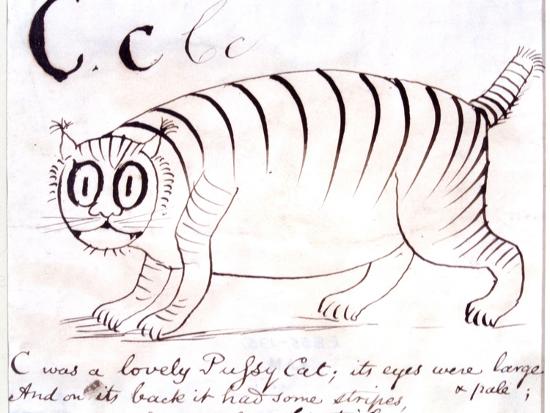 C. c C c
C was a lovely Pussy Cat; its eyes were large
And on its back it had some stripes & pale;